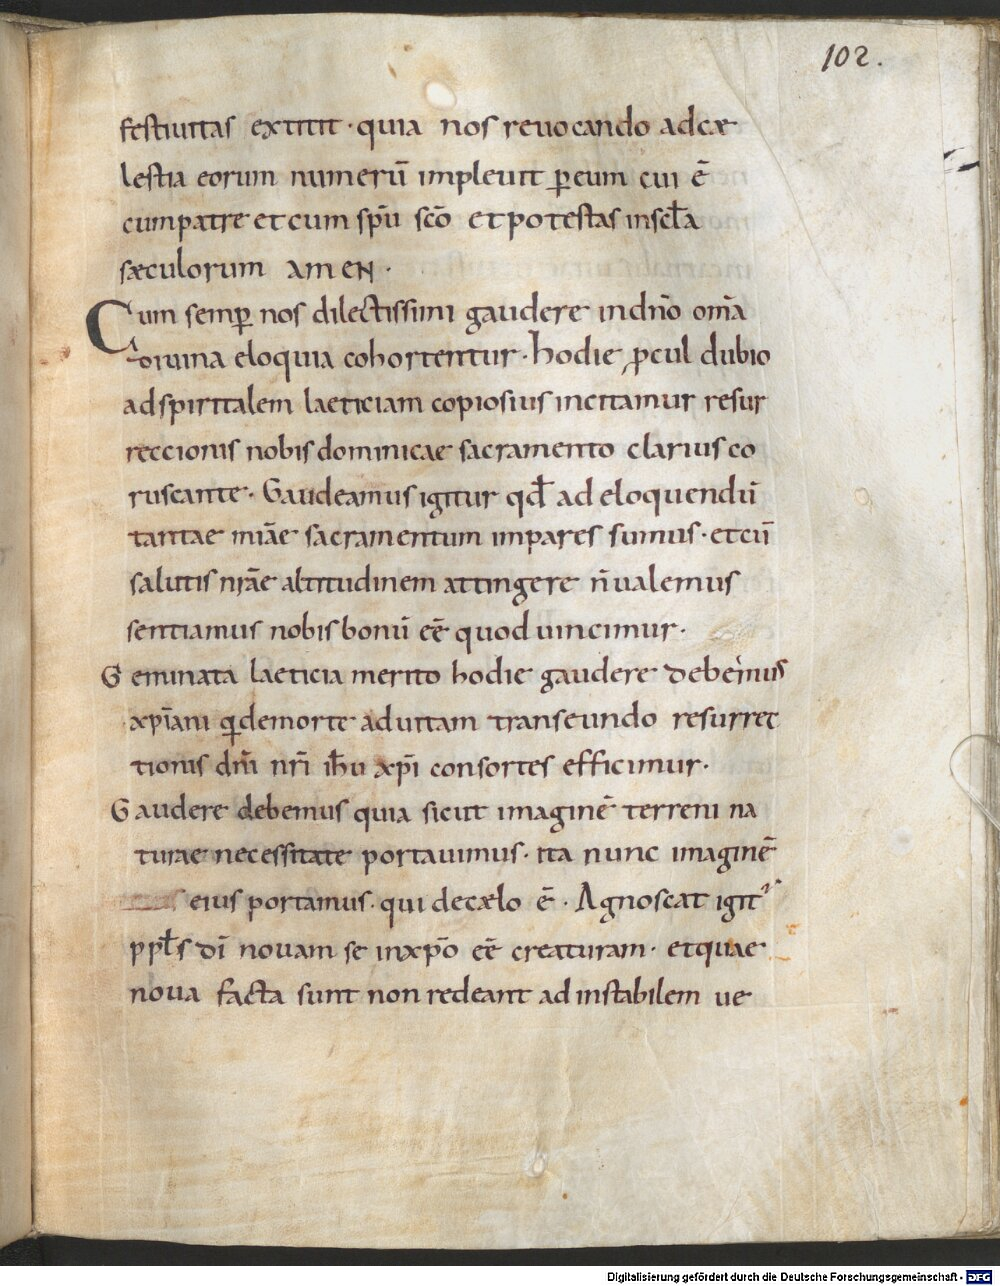 102.
festiuitas extitit · quia nos reuocando ad cæ
lestia eorum numerū impleuit ꝑ eum cui ē
cum patre et cum sp̄u sc̄o et potestas in sc̄la
sæculorum AMEN ·
Cum semꝑ nos dilectissimi gaudere in dn̄o om̄a
diuina eloquia cohortentur · hodie ꝓcul dubio
ad spiritalem laeticiam copiosius incitamur resur
reccionis nobis dominicae sacramento clarius co
ruscante · Gaudeamus igitur qd̄ ad eloquendū
tantae miāe sacramentum impares sumus · et cū
salutis nr̄ae altitudinem attingere n̄ ualemus
sentiamus nobis bonū eē quod uincimur ·
Geminata laeticia merito hodie gaudere debemus
xp̄iani qui de morte ad uitam transeundo resurrec
tionis dn̄i nr̄i ih̄u xp̄i consortes efficimur ·
Gaudere debemus quia sicut imaginē terreni na
turae necessitate portauimus · ita nunc imaginē
eius portamus · qui de cælo ē · Agnoscat igit᷑
ppl̄s dī nouam se in xp̄o eē creaturam · et quae
noua facta sunt non redeant ad instabilem ue
Digitalisierung gefördert durch die Deutsche Forschungsgemeinschaft - DFG